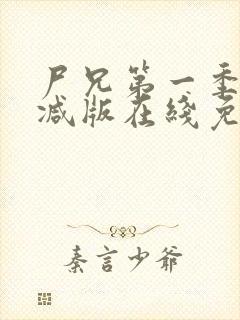 尸兄第一季
减版在线免
秦言少爷